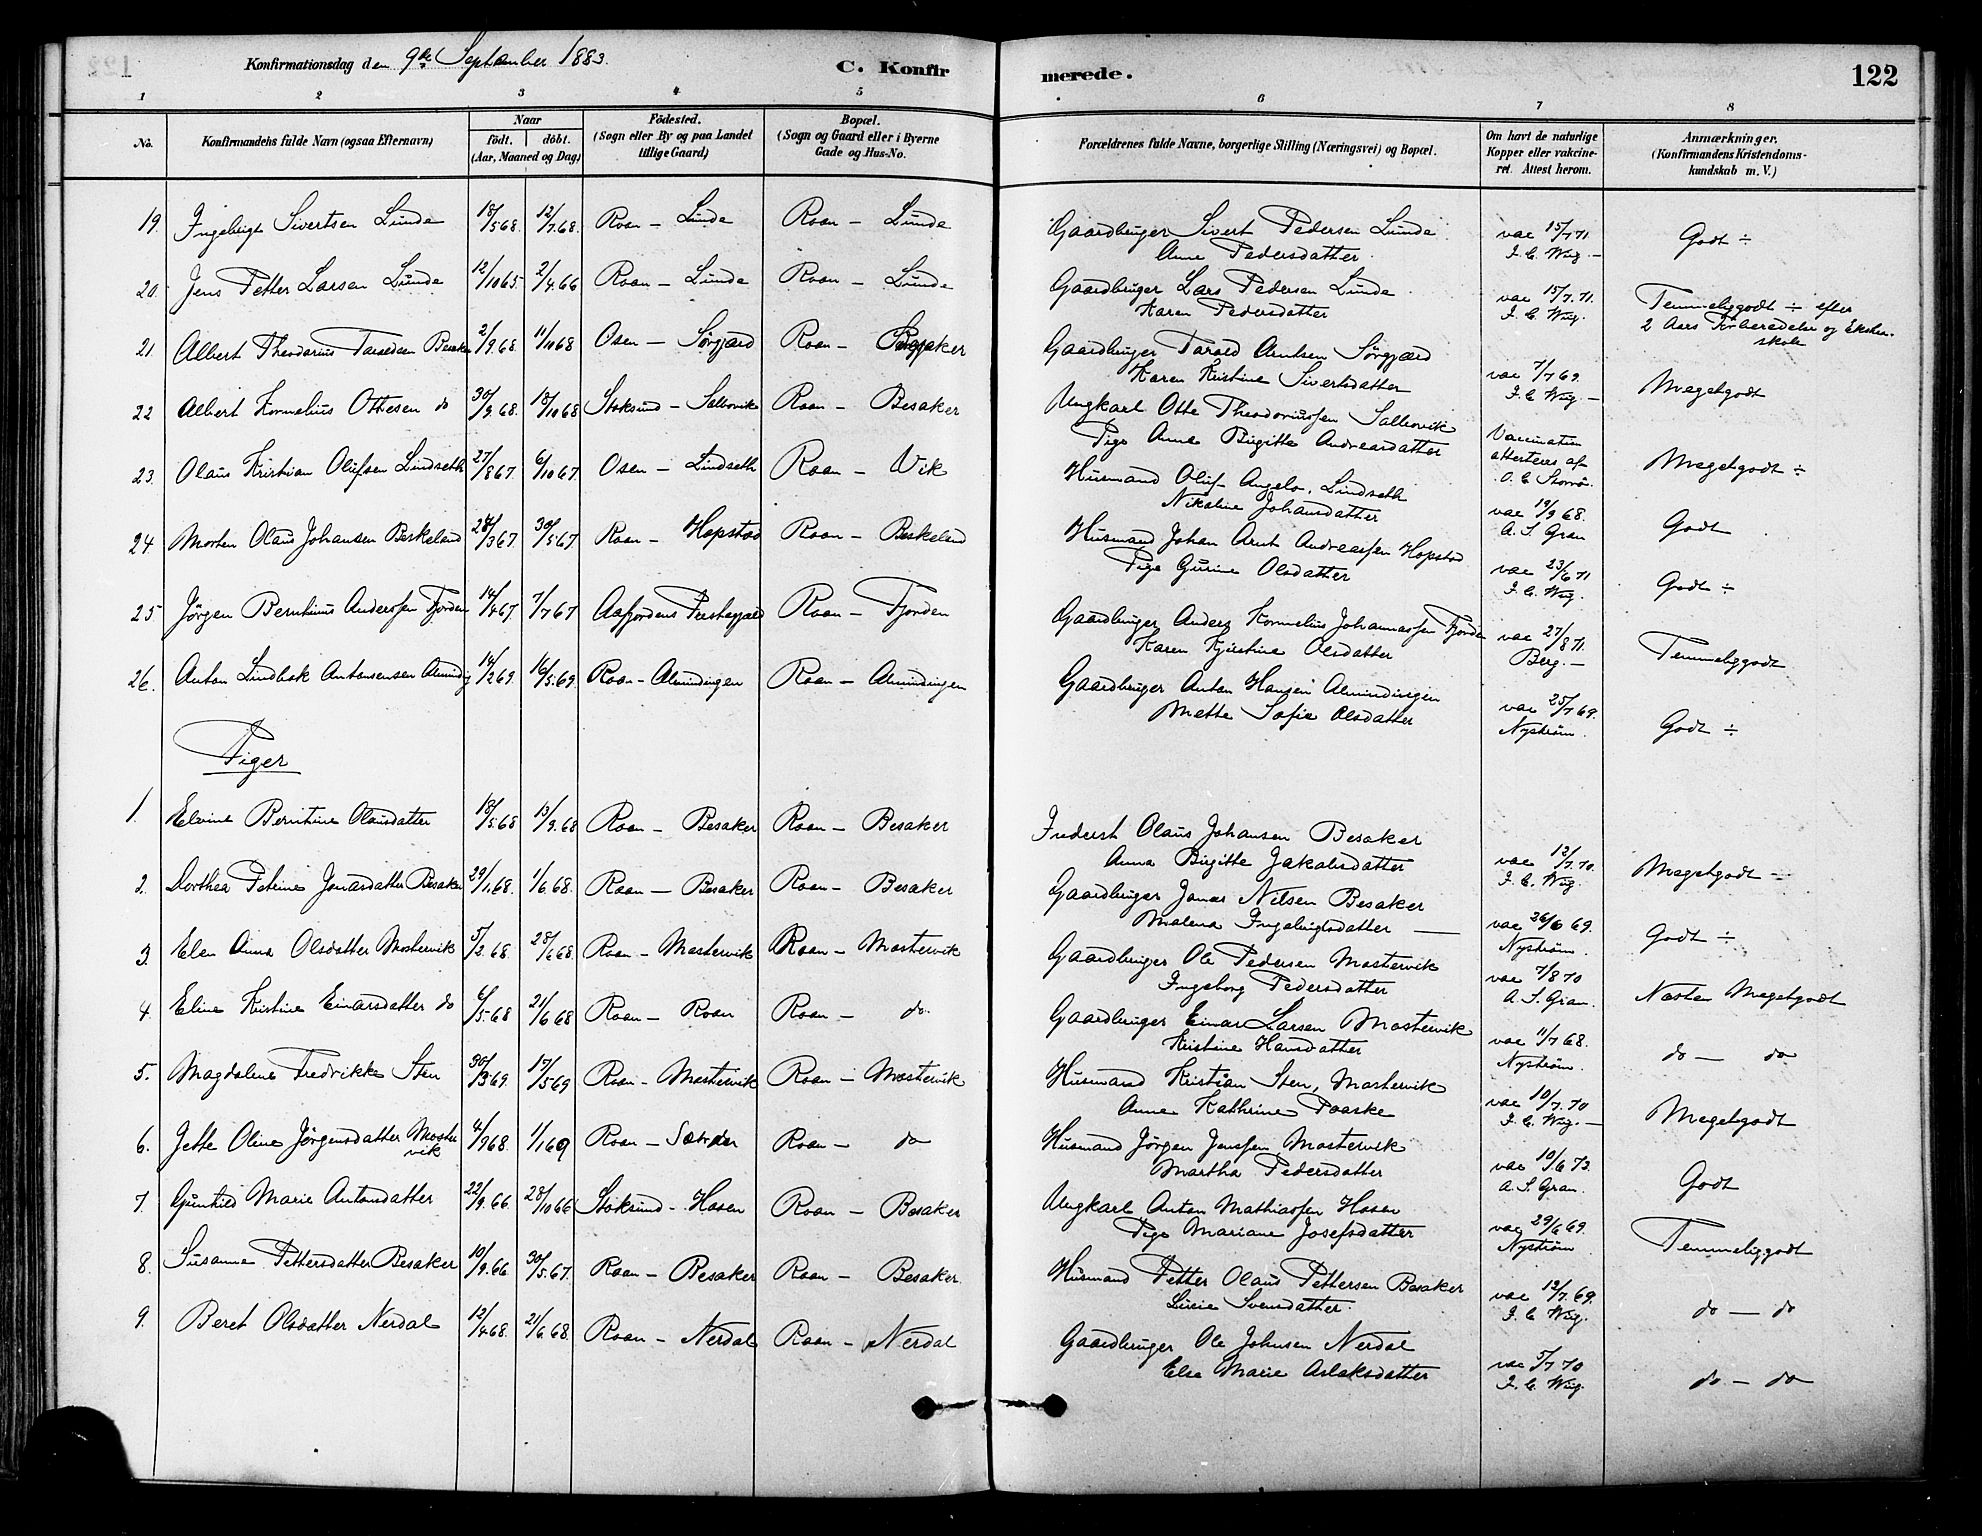 Konfirmationsdag den 9de September 1883.
C. Konfirmerede.
122
1 2 3 4 5 6 7 8
No.
Konfirmandens fulde Navn (ogsaa Efternavn)
Naar
födt. döbt.
(Aar, Maaned og Dag)
Födested.
(Sogn eller By og paa Landet
tillige Gaard)
Bopæl.
(Sogn og Gaard eller i Byerne
Gade og Hus-No.
Forældrenes fulde Navne, borgerlige Stilling (Næringsvei) og Bopæl.
Om havt de naturlige
Kopper eller vakcine-
ret. Attest herom.
Anmærkninger.
(Konfirmandens Kristendoms-
kundskab m. V.)
19. Ingebrigt Sivertsen Lunde 18/5 68. 12/7 68. Roan – Lunde Roan – Lunde Gaardbruger Sivert Pedersen Lunde vac 15/7 71 Godt ÷
Anne Pedersdatter. I. C. Wüg. –
20. Jens Petter Larsen Lunde 12/10 65. 2/4 66 Roan – Lunde Roan – Lunde Gaardbruger Lars Pedersen Lunde vac 15/7 71. Temmeliggodt ÷ efter
Karen Pedersdatter I. C. Wüg. 2 Aars Forberedelse og
skole
21. Albert Theodorius Besaker 2/9 68. 11/10 68 Osen – Sörgjærd Roan – Besaker Gaardbruger Tarald Arntsen Sörgjærd vac 7/7 69. Megetgodt
Karen Kristine Sivertsdatter I. C. Wüg –
22 Albert Kornelius Ottesen do 30/9 68. 18/10 68 Stoksund – Salbovik Roan – Besaker Ungkarl Otte Theodoriussen Salbovik Vaccination
Pige Anne Birgitte Andreasdatter attesteres af
23. Olaus Kristian Olufsen Lindseth 27/8 67 6/10 67. Osen – Lindseth Roan – Vik Husmand Oluf Angelo. Lindseth O. C. Storrö. Megetgodt ÷
Nikoline Johansdatter
24 Morten Olaus Johansen Beskeland 28/3 67. 30/5 67 Roan – Hopstad Roan – Beskeland Husmand Johan Arnt Andreassen Hopstad vac 19/9 68. Godt
Pige Gurine Olsdatter A. S. Gran
25. Jörgen Bernhinus Anderssen Fjorden 14/4 67 7/7 67 Aafjordens Roan – Fjorden Gaardbruger Anders Kornelius Johannessen Fjorden vac 23/6 71 Godt ÷
Karen Kjirstine Olsdatter I. C. Wüg.
26. Anton Lindbak Antonsensen 14/2 69. 16/5 69. Roan – Almindingen Roan – Almindingen Gaardbruger Anton Hansen Almindingen vac 27/8 71. Temmeliggodt
Mette Sofie Olsdatter Berg. –
vac 25/7 69. Godt ÷
Nyström.
Piger
1. Elvine Berntine Olausdatter 18/5 68 13/9 68 Roan – Besaker Roan – Besaker Inderst Olaus Johansen Besaker
Anna Birgitte Jakobsdatter vac 12/7 70. Megetgodt –
I. C. Wüg.
2. Dorthea Petrine Jonasdatter Besaker 29/1 68. 1/6 68. Roan – Besaker Roan – Besaker Gaardbruger Jonas Nilsen Besaker
Malena Ingebrigtsdatter — vac 26/6 69. Godt ÷
Nyström.
3. Elen Anna Olsdatter Mostervik 5/2 68. 28/6 68. Roan – Mostervik Roan – Mostervik Gaardbruger Ole Pedersen Mostervik
Ingeborg Pedersdatter vac 7/8 70 Næsten Megetgodt
A. S. Gran.
4. Eline Kristine Einarsdatter do 6/5 68 21/6 68 Roan – Roan Roan – do. Gaardbruger Einar Larsen Mostervik
Kristine Hansdatter vac 11/7 68. do – do
Nyström.
5. Magdalene Fredrikke Sten 30/3 69. 17/5 69 Roan – Mostervik Roan – Mostervik Husmand Kristian Sten, Mostervik
Anne Kathrine Paaske vac 10/7 70 Megetgodt
I. C. Wüg. –
6. Jette Oline Jörgensdatter Moster 4/9 68. 1/1 69 Roan – Roan – do Husmand Jörgen Jenssen Mostervik
vik Martha Pedersdatter vac 10/6 73. Godt
A. S. Gran.
7. Gunhild Marie Antonsdatter 22/9 66. 28/10 66 Stoksund – Hosen Roan – Besaker Ungkarl Anton Mathiassen Hosen
Pige Mariane Josefsdatter vac 29/6 69. Temmeliggodt
Nyström
8. Susanne Pettersdatter Besaker 10/9 66. 30/5 67. Roan – Besaker Roan – Besaker. Husmand Petter Olaus Pettersen Besaker
Lucie Svensdatter. vac 12/7 69. do – do
I. C. Wüg.
9. Beret Olsdatter Nerdal 12/4 68. 21/6 68. Roan – Nerdal Roan – Nerdal Gaardbruger Ole Johnsen Nerdal
Else Marie Aslaksdatter vac 5/7 70 do – do
I. C. Wüg.